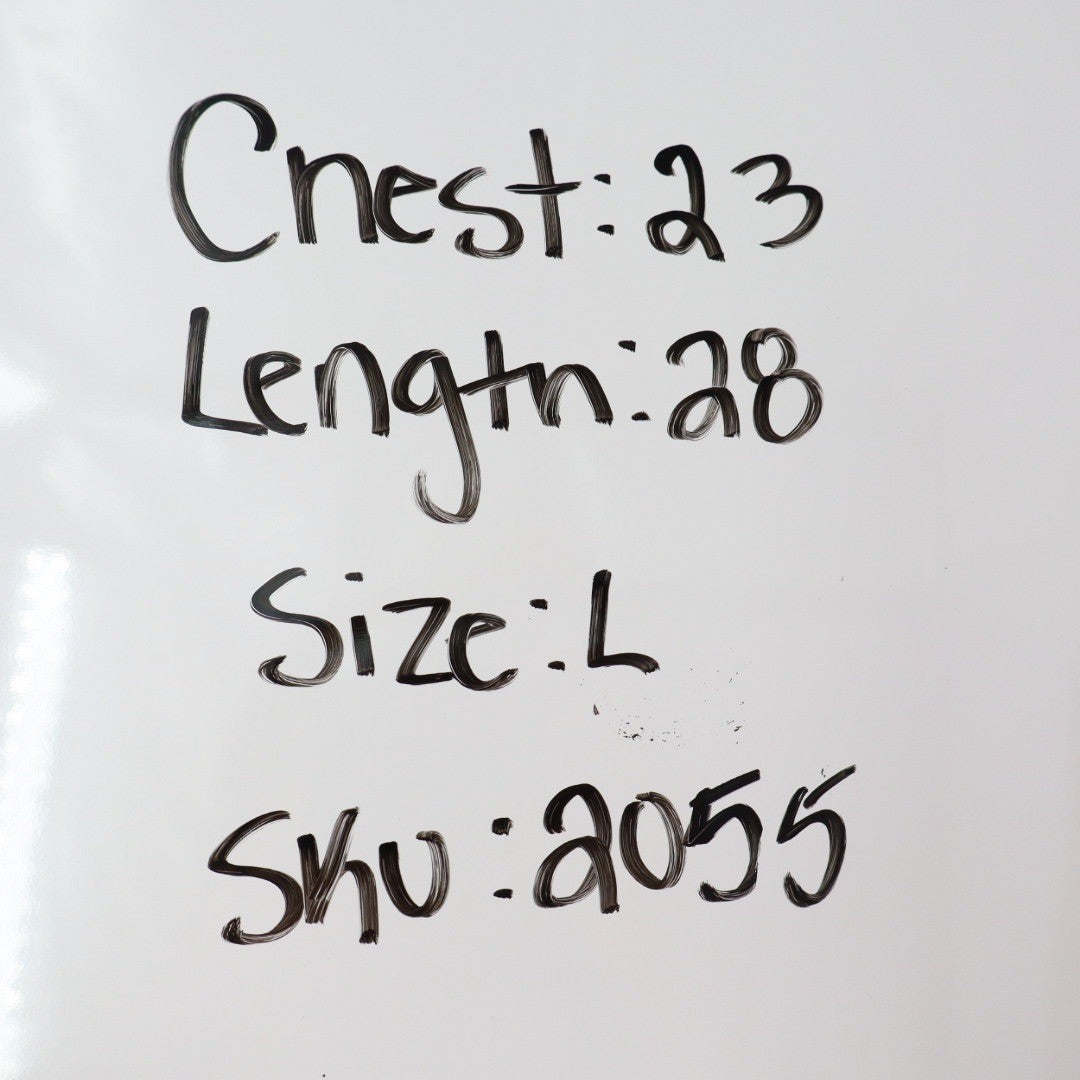 Chest: 23
Length: 28
Size: L
Sku: 2055